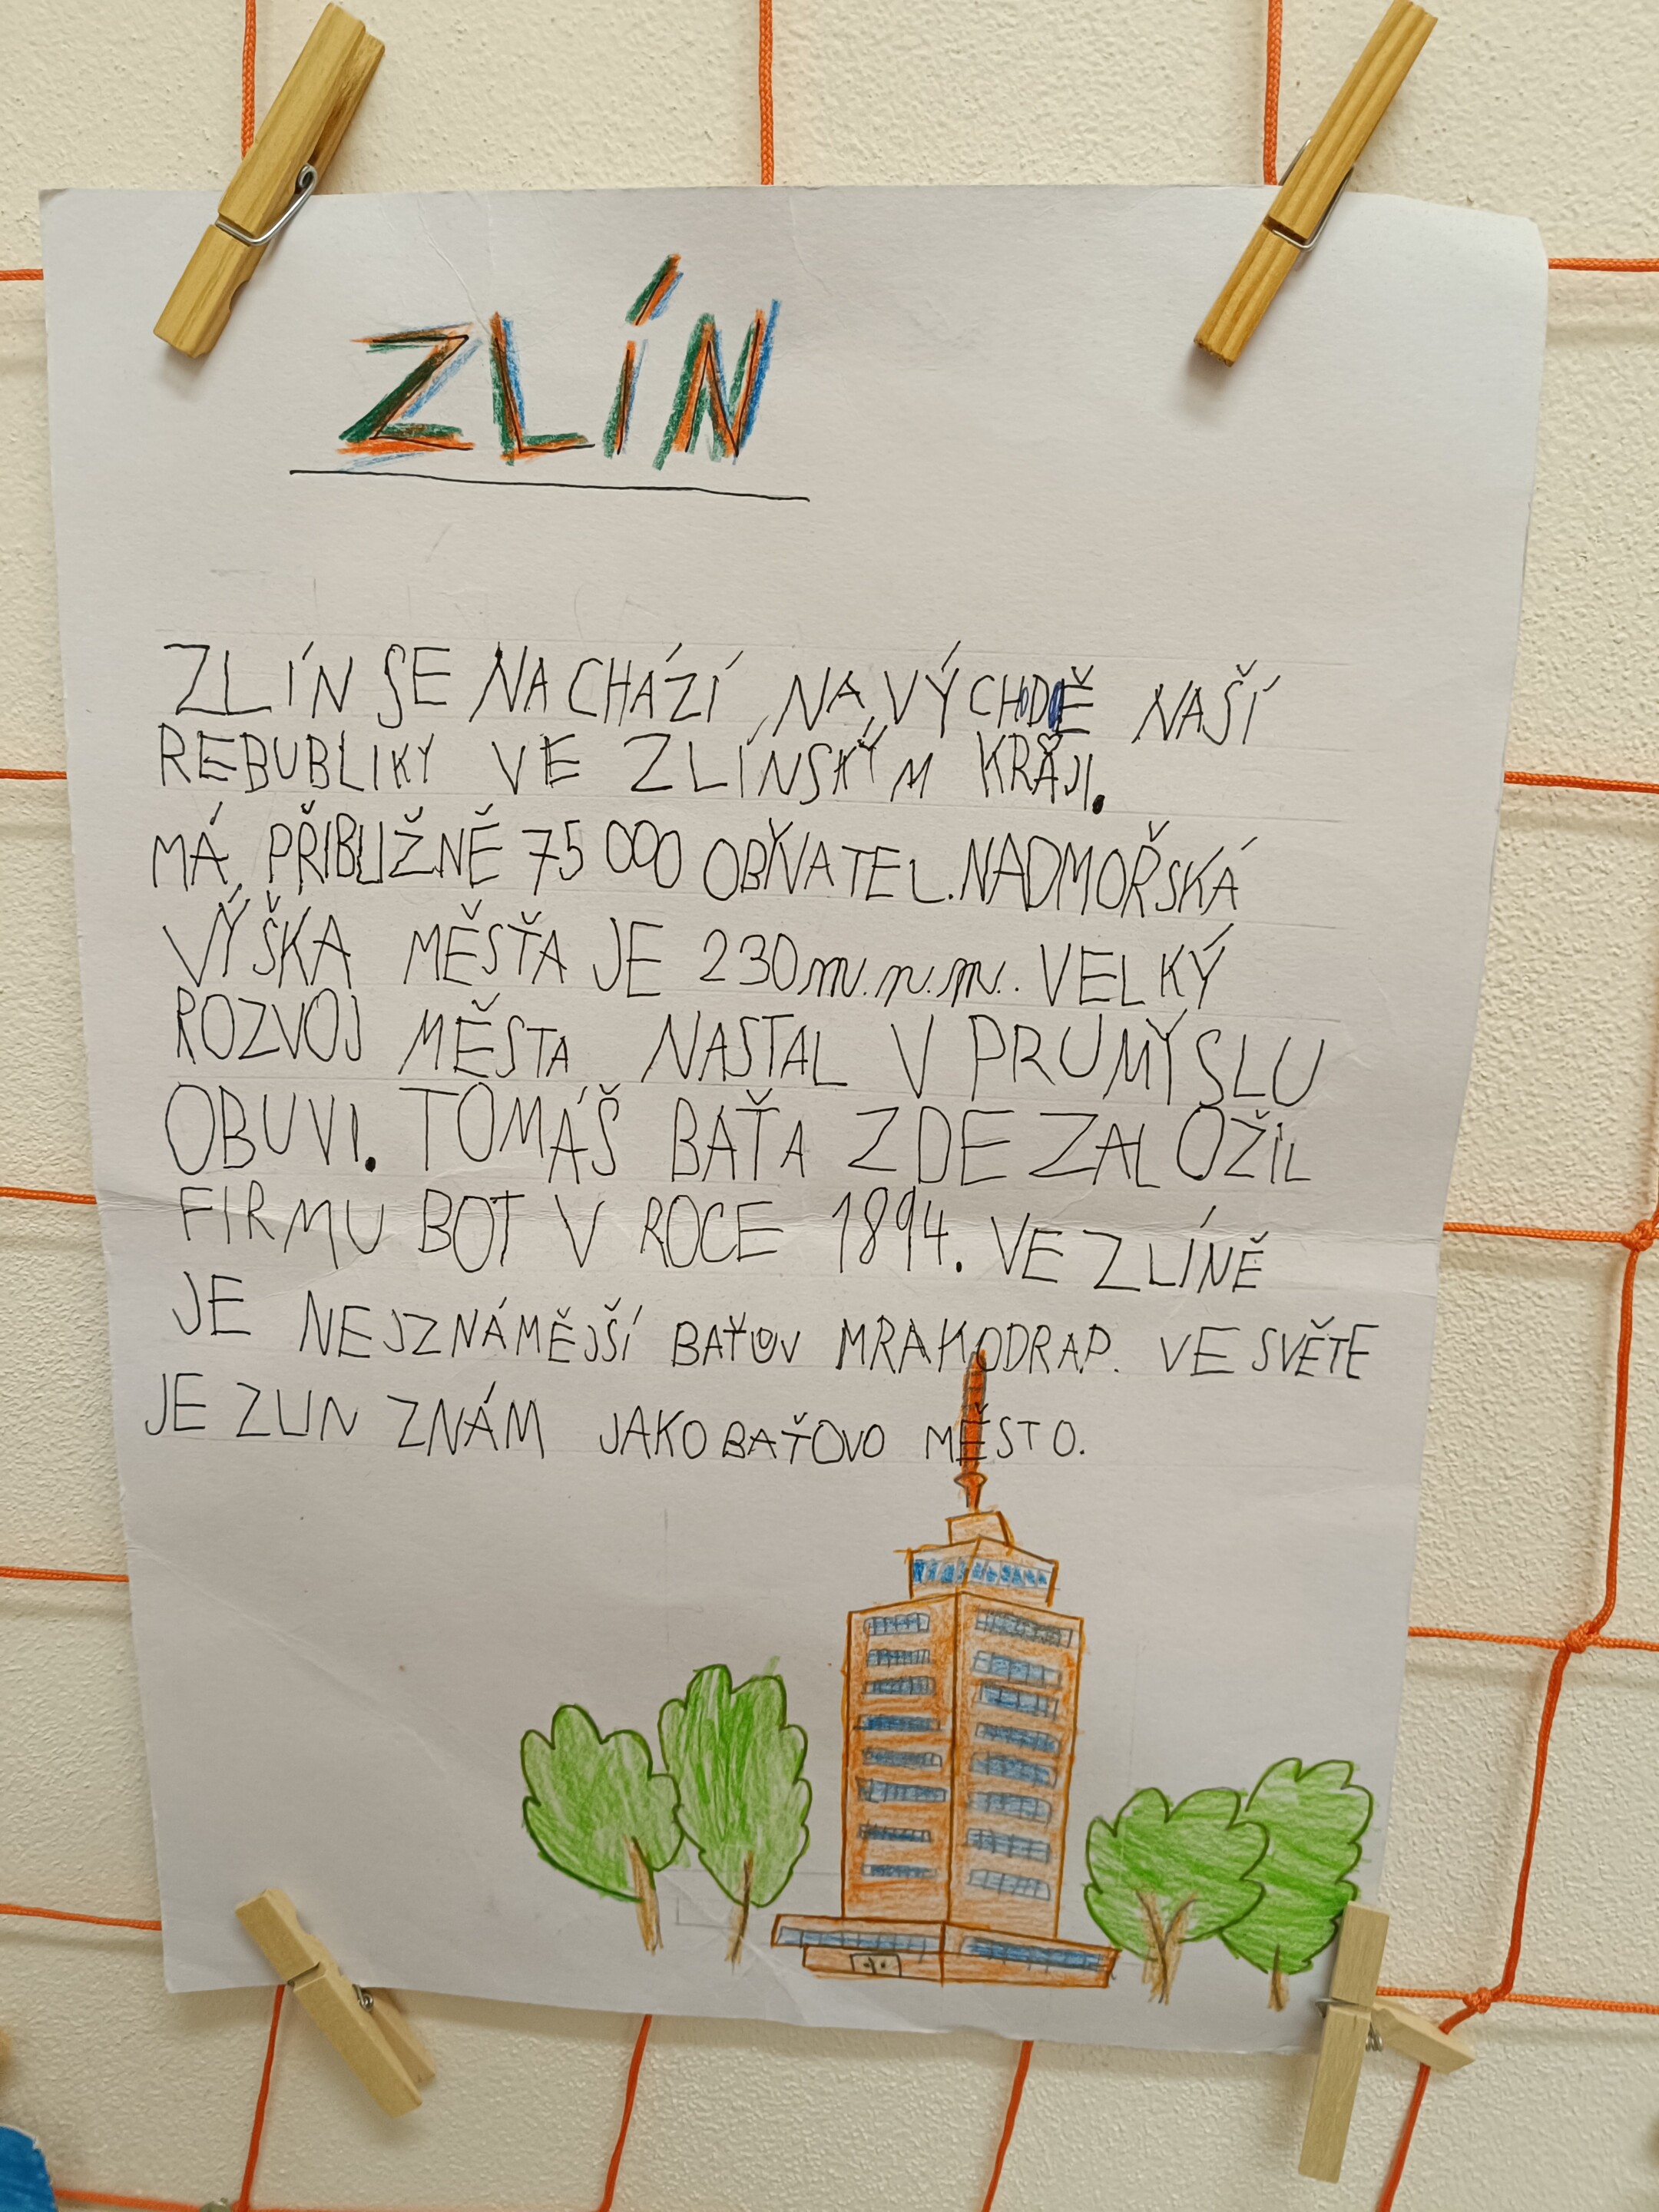 ZLÍN
ZLÍN SE NACHÁZÍ NA VÝCHODĚ NAŠÍ
REBUBLIKY VE ZLÍNSKÝM KRAJI.
MÁ PŘIBLIŽNĚ 75 000 OBYVATEL. NADMOŘSKÁ
VÝŠKA MĚSŤA JE 230 m.n.m. VELKÝ
ROZVOJ MĚSTA NASTAL V PRUMYSLU
OBUVI. TOMÁŠ BAŤA ZDE ZALOŽIL
FIRMU BOT V ROCE 1894. VE ZLÍNĚ
JE NEJZNÁMĚJŠÍ BAŤŮV MRAKODRAP. VE SVĚTE
JE ZLIN ZNÁM JAKO BAŤOVO MĚSTO.